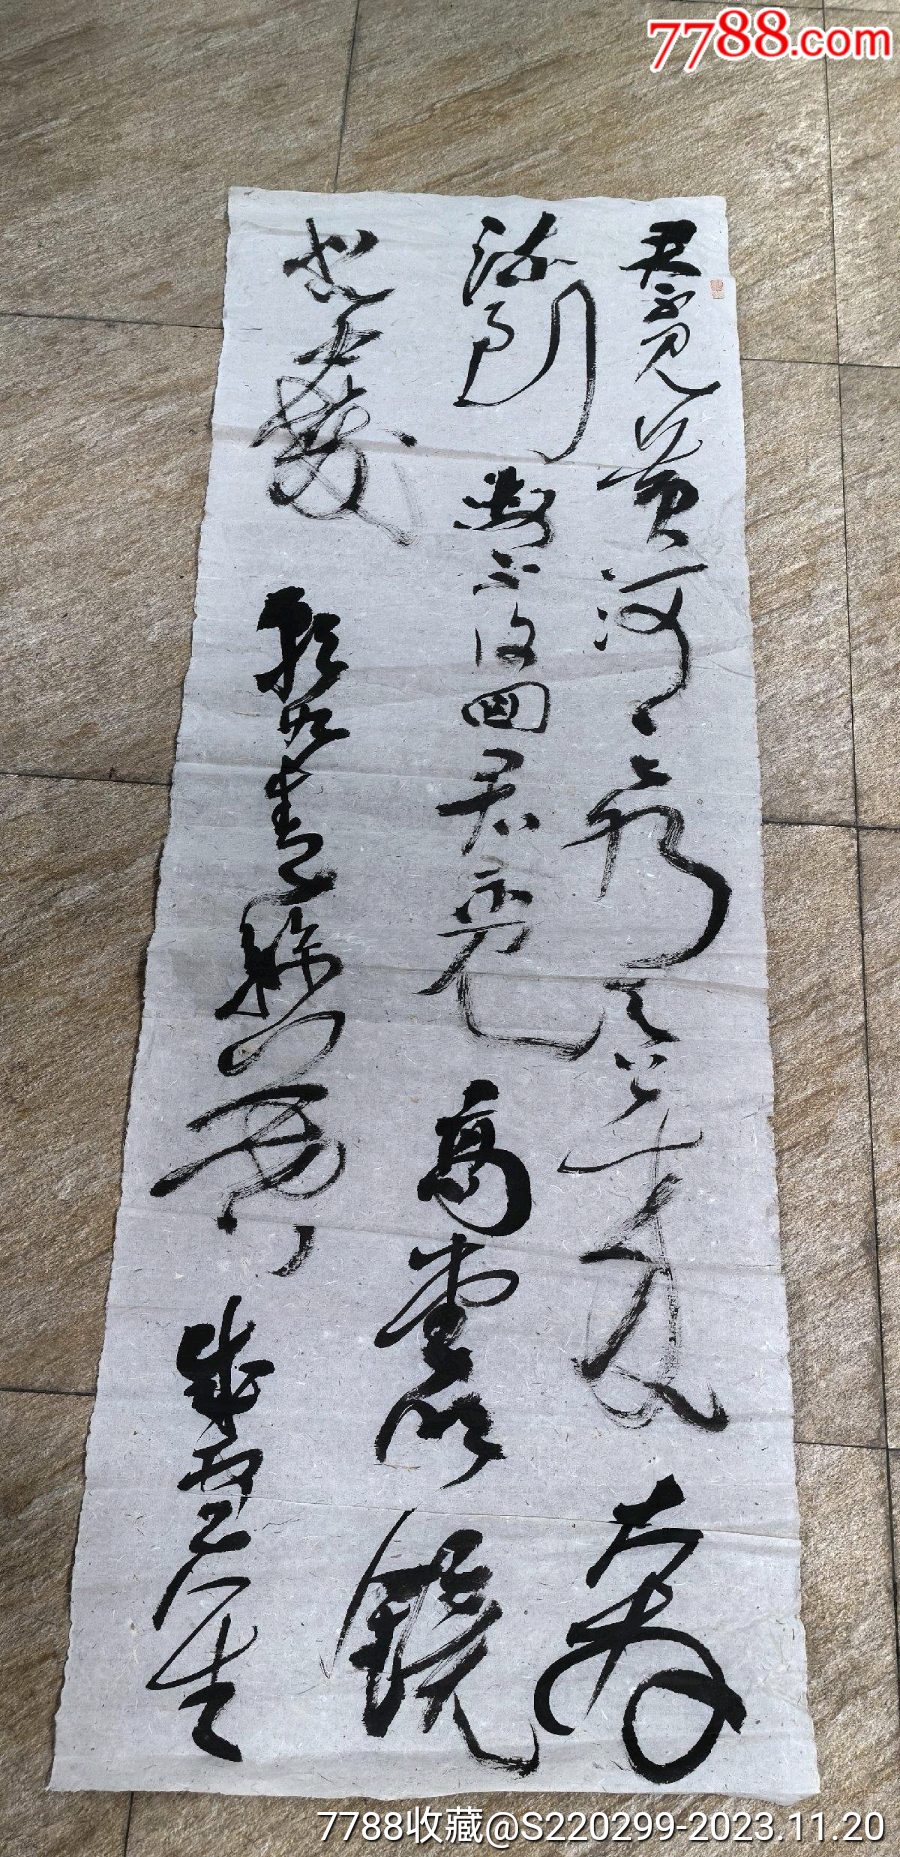 7788.com
君不見黄河之水天上来奔
流到海不復回君不見高堂明鏡
悲白髮朝如青絲暮成雪人生
7788收藏@S220299-2023.11.20